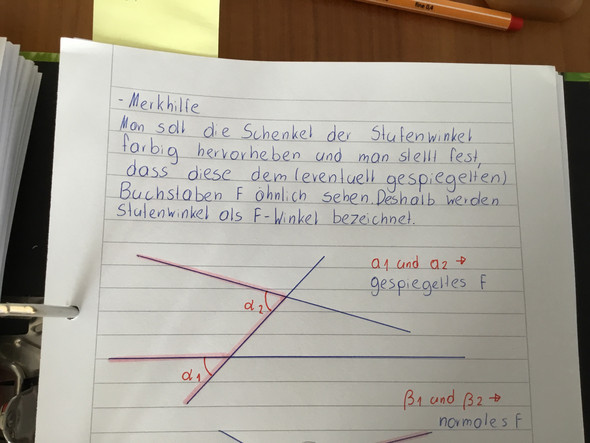 - Merkhilfe
Man soll die Schenkel der Stufenwinkel
farbig hervorheben und man stellt fest,
dass diese dem (eventuell gespiegelten)
Buchstaben F ähnlich sehen. Deshalb werden
Stufenwinkel als F-Winkel bezeichnet.
α1 und α2 →
gespiegeltes F
α2
α1
β1 und β2 →
normales F